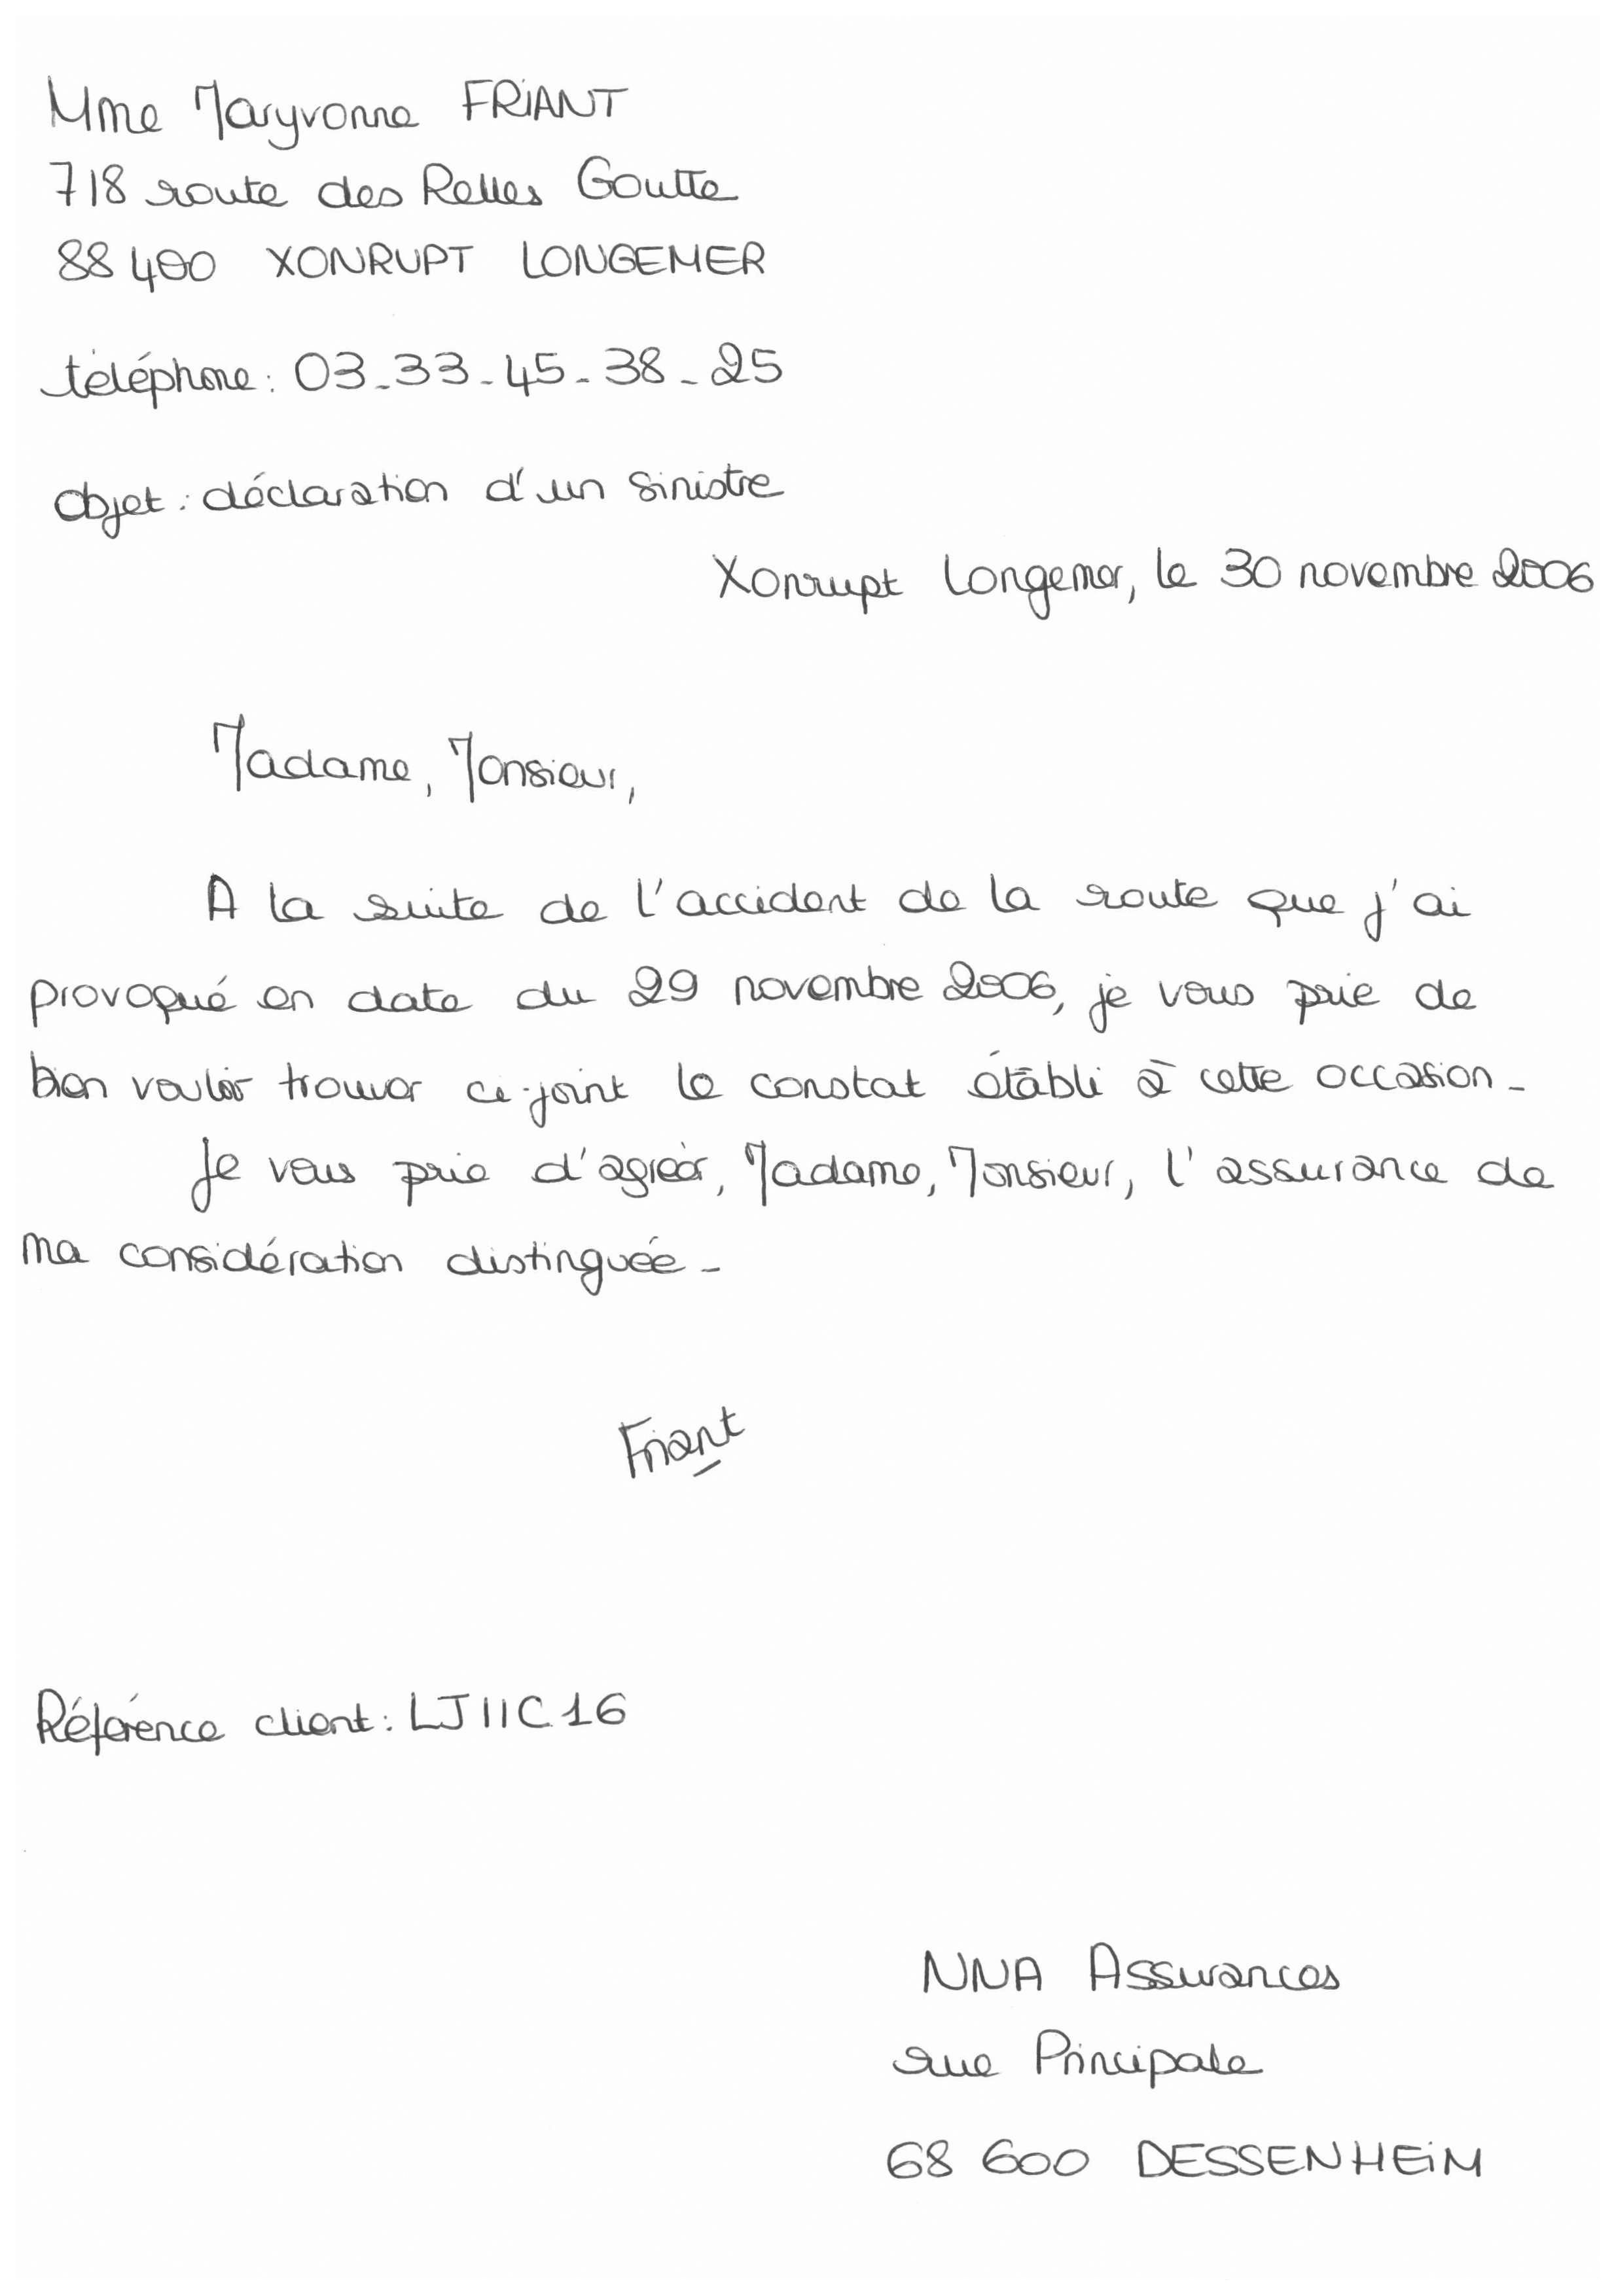 Mme Maryvonne FRIANT
718 route des Relles Goutte
88 400 XONRUPT LONGEMER
téléphone : 03-33-45-38-25
objet : déclaration d'un sinistre
Xonrupt Longemer, le 30 novembre 2006
Madame, Monsieur,
A la suite de l'accident de la route que j'ai
provoqué en date du 29 novembre 2006, je vous prie de
bien vouloir trouver ci-joint le constat établi à cette occasion -
Je vous prie d'agréer, Madame, Monsieur, l'assurance de
ma considération distinguée -
Friant
Référence client : LJIIC16
NNA Assurances
rue Principale
68 600 DESSENHEIM